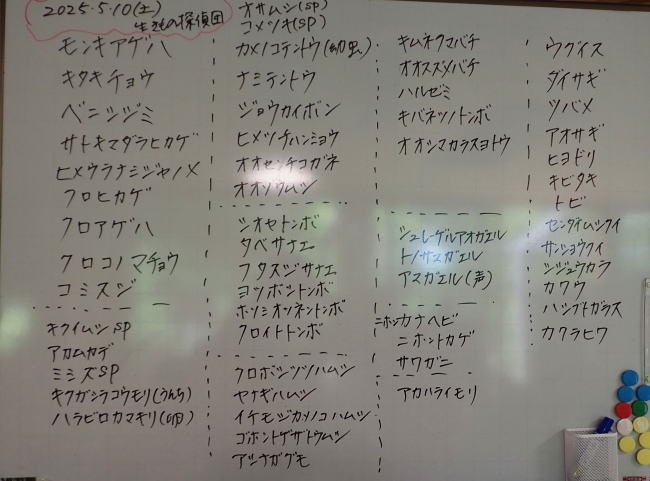 2025.5.10(土)
生きもの探偵団
モンキアゲハ
キタキチョウ
ベニシジミ
サトキマダラヒカゲ
ヒメウラナミジャノメ
クロヒカゲ
クロアゲハ
クロコノマチョウ
コミスジ
キクイムシSP
アカムカデ
ミミズSP
キクガシラコウモリ(うんち)
ハラビロカマキリ(卵)
オサムシ(SP)
コメツキ(SP)
カメノコテントウ(幼虫)
ナミテントウ
ジョウカイボン
ヒメツチハンミョウ
オオセンチコガネ
オオゾウムシ
シオヤトンボ
タベサナエ
フタスジサナエ
ヨツボシトンボ
ホソミオツネントンボ
クロイトトンボ
クロボシツツハムシ
ヤナギハムシ
イチモンジカメノコハムシ
ゴホントゲザトウムシ
アシナガグモ
キムネクマバチ
オオスズメバチ
ハルゼミ
キバネツノトンボ
オオシマカラスヨトウ
シュレーゲルアオガエル
トノサマガエル
アマガエル(声)
ニホンカナヘビ
ニホントカゲ
サワガニ
アカハライモリ
ウグイス
ダイサギ
ツバメ
アオサギ
ヒヨドリ
キビタキ
トビ
センダイムシクイ
サンショウクイ
シジュウカラ
カワウ
ハシブトガラス
カワラヒワ